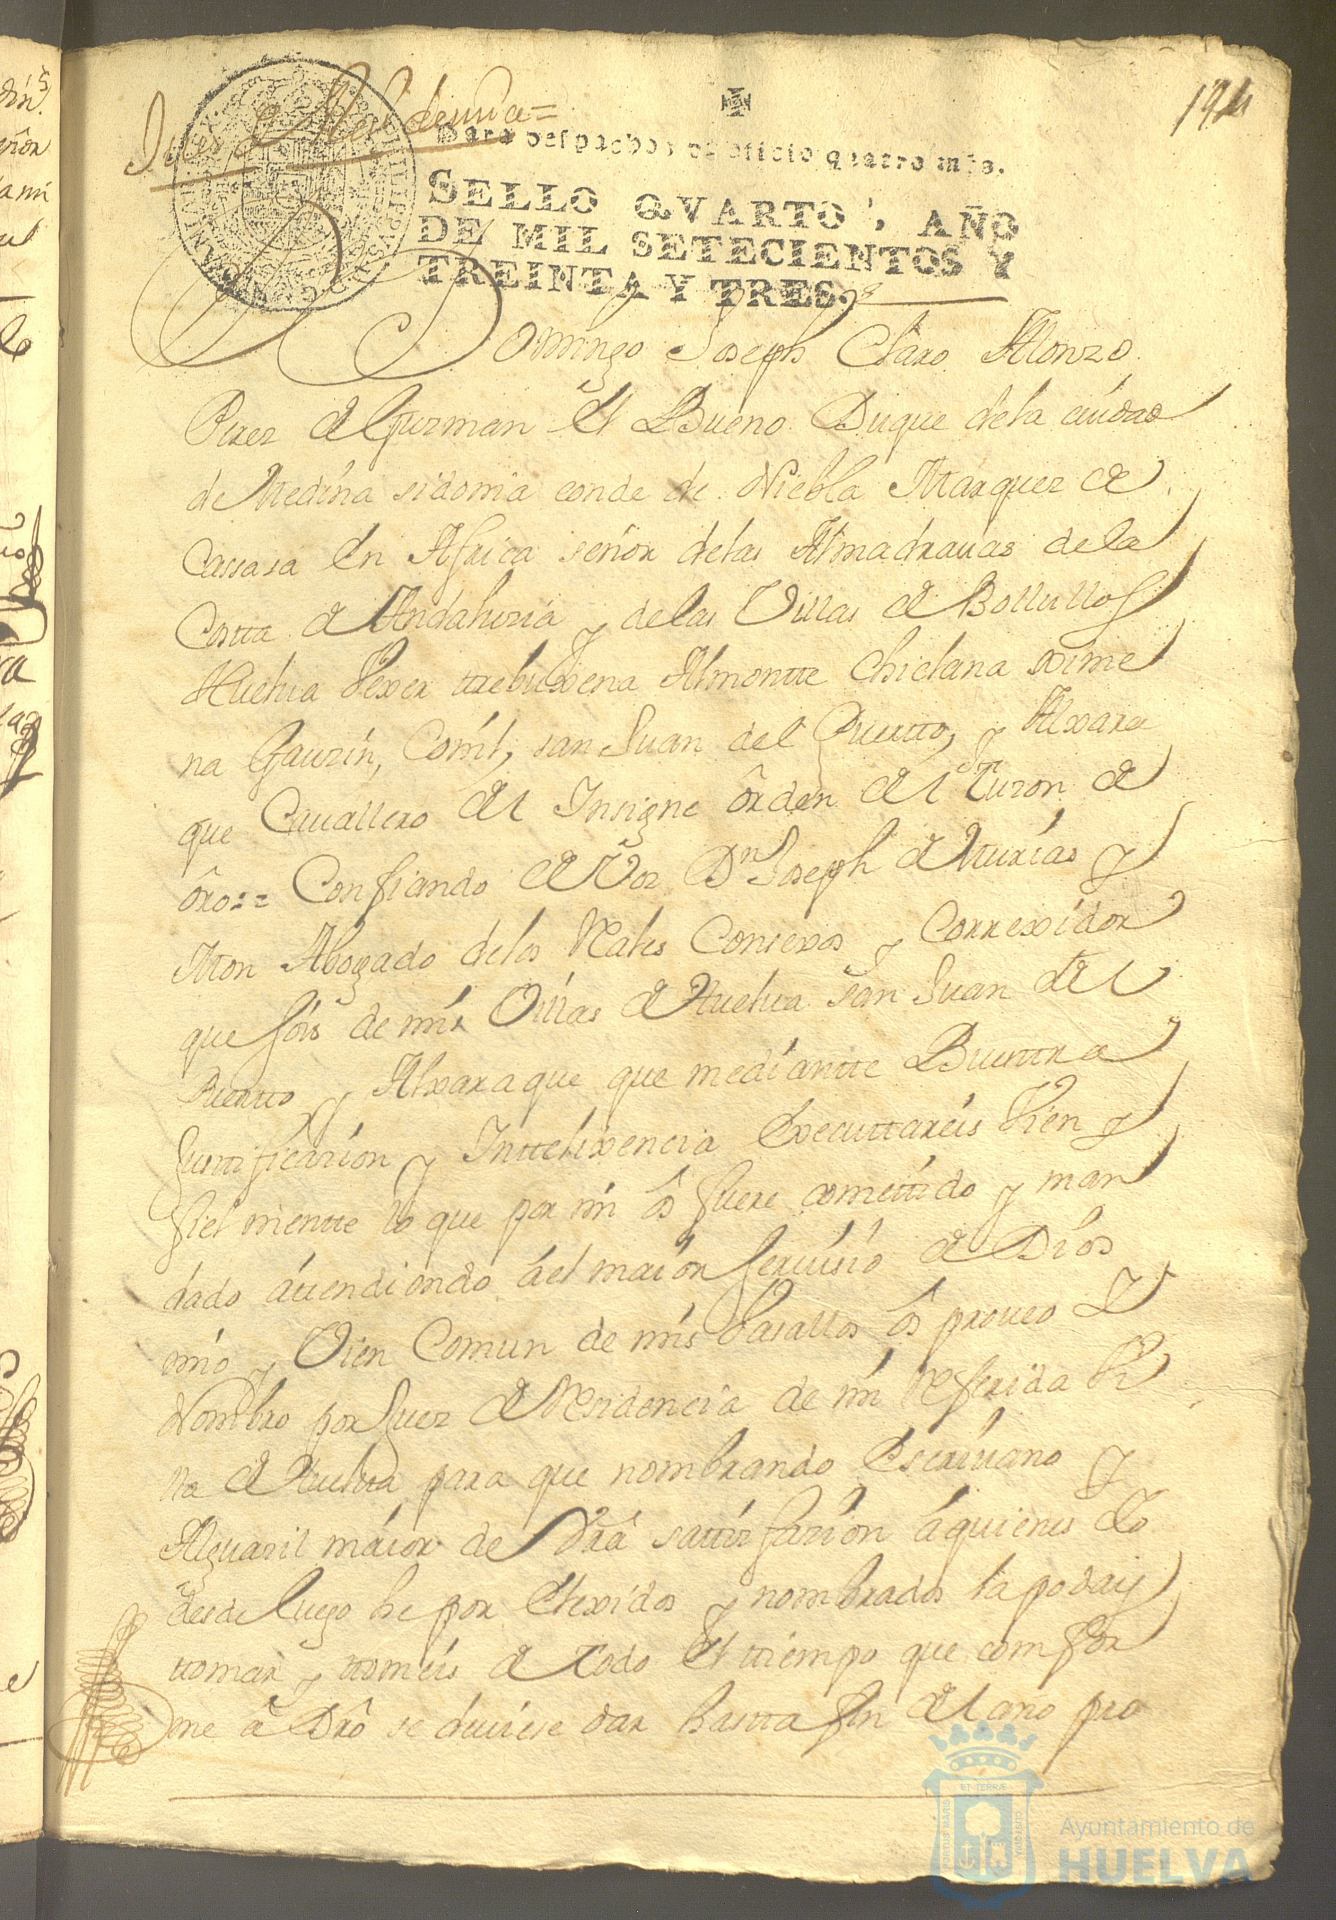 194
Juez de Residencia=
Para despachos de oficio quatro mrs.
SELLO QVARTO, AÑO
DE MIL SETECIENTOS Y
TREINTA Y TRES.
Domingo Joseph Claro Alonzo
Perez de Guzman el Bueno Duque de la ciudad
de Medina sidonia conde de Niebla Marquez de
Cassasa en Africa señor de las Almadrauas de la
Costta de Andaluzia y de las Villas de Bollullos
Huelua Vexer ttrebuxena Almontte Chiclana xime
na Gauzin, Conil, san Juan del Puertto, y Alxara
que Cauallero del Insigne órden del tuson de
óro:= Confiando de Vos Dn Joseph de Asturias y
Mon Abogado de los Rales Consexos y Correxidor
que sois de mis Villas de Huelua san Juan del
Puertto y Alxaraque que mediantte Buesttra
Justtificazion y Inttelixencia Executtareis Bien y
fiel mentte lo que por mi ós fuere comettido y man
dado áttendiendo áel maior seruisio de Dios
mio y Vien Comun de mis Basallos ós proueo y
Nombro por Juez de Residencia de mi Referida Vi
lla de Huelua para que nombrando Escriuano y
Alguazil maior de Vra sattisfazion áquienes Yo
desde luego he por Elexidos y nombrados la podais
ttomar y ttomeis de todo el ttiempo que comfor
me á Dro se deuiese dar hastta fin del año pro
ET TERRÆ
PORTUS MARIS
CUSTODIA
Ayuntamiento de
HUELVA